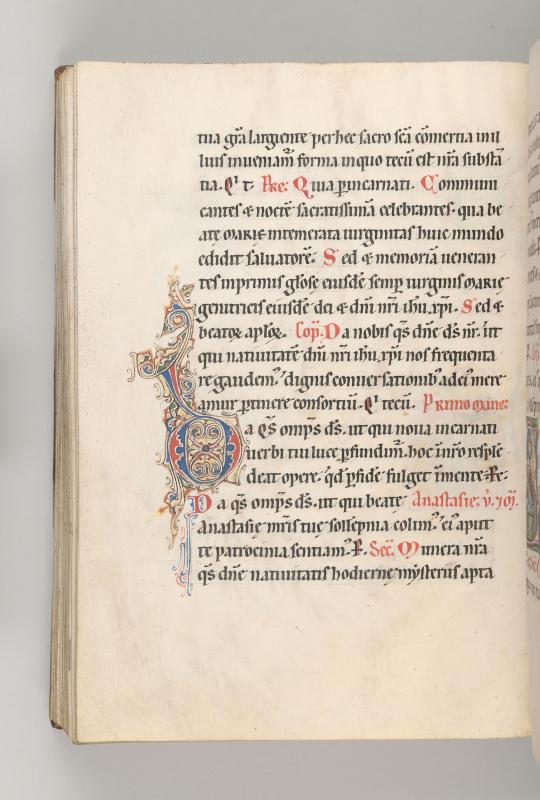 tua gr̃a largiente per hec sacro sc̃a cõmertia in il
lius inueniam̃ forma in quo tecũ est nr̃a substã
tia. Q̃ t̃. Pre: Quia ꝑ incarnati. Communi
cantes ⁊ noctẽ sacratissimã celebrantes. qua be
ate Marie intemerata uirginitas huic mundo
edidit saluatorẽ. Sed ⁊ memoriã ueneran
tes inprimis glõse eiusdẽ semꝑ uirginis marie
genitricis eiusdẽ dei ⁊ dñi nr̃i ihũ xp̃i. Sed ⁊
beatoꝝ aplõꝝ. Com̃. Da nobis q̃s dñe ds̃ nr̃. ut
qui natiuitatẽ dñi nr̃i ihũ xp̃i nos frequenta
re gaudem᷒. dignis conuersationib᷒ ad ei᷒ mere
amur ꝑtinere consortiũ. Q̃ tecũ. Primo mane:
Da q̃s omp̃s ds̃. ut qui noua incarnati
uerbi tui luce ꝑfundim̃. hoc in nr̃o resplẽ
deat opere. qd̃ ꝑ fidẽ fulget in mente. P̲e̲.
Da q̃s omp̃s ds̃. ut qui beate Anastasie: v̾.
anastasie mr̃is tue sollepnia colim᷒. ei᷒ aput
te patrocinia sentiam᷒. P. Sec̃. Munera nr̃a
q̃s dñe natiuitatis hodierne mysteriis apta